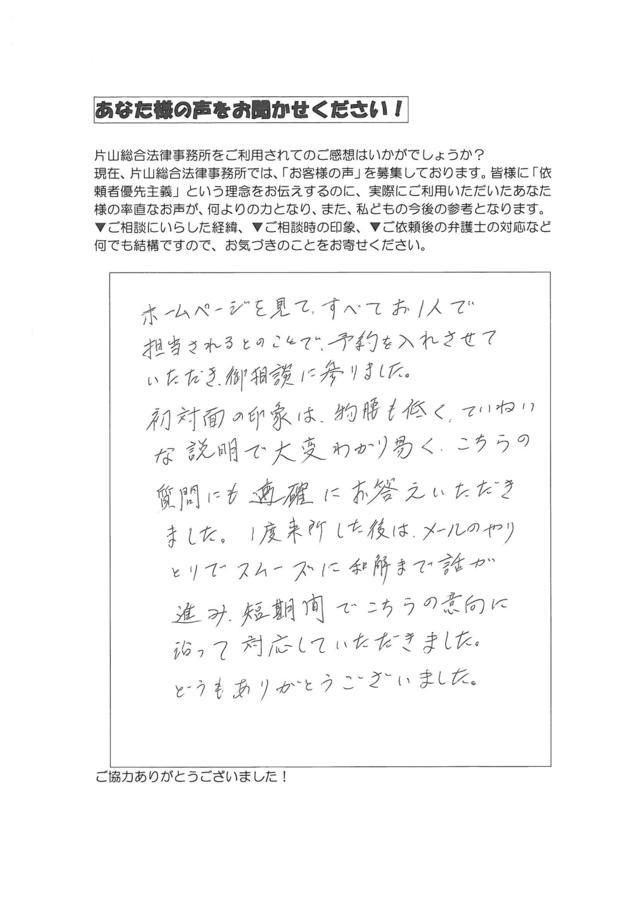 あなた様の声をお聞かせください！
片山総合法律事務所をご利用されてのご感想はいかがでしょうか？
現在、片山総合法律事務所では、「お客様の声」を募集しております。皆様に「依
頼者優先主義」という理念をお伝えするのに、実際にご利用いただいたあなた
様の率直なお声が、何よりの力となり、また、私どもの今後の参考となります。
▼ご相談にいらした経緯、▼ご相談時の印象、▼ご依頼後の弁護士の対応など
何でも結構ですので、お気づきのことをお寄せください。
ホームページを見て、すべてお1人で
担当されるとのことで、予約を入れさせて
いただき、御相談に参りました。
初対面の印象は、物腰も低く、ていねい
な説明で大変わかり易く、こちらの
質問にも適確にお答えいただき
ました。1度来所した後は、メールのやり
とりでスムーズに和解まで話が
進み、短期間でこちらの意向に
沿って対応していただきました。
どうもありがとうございました。
ご協力ありがとうございました！